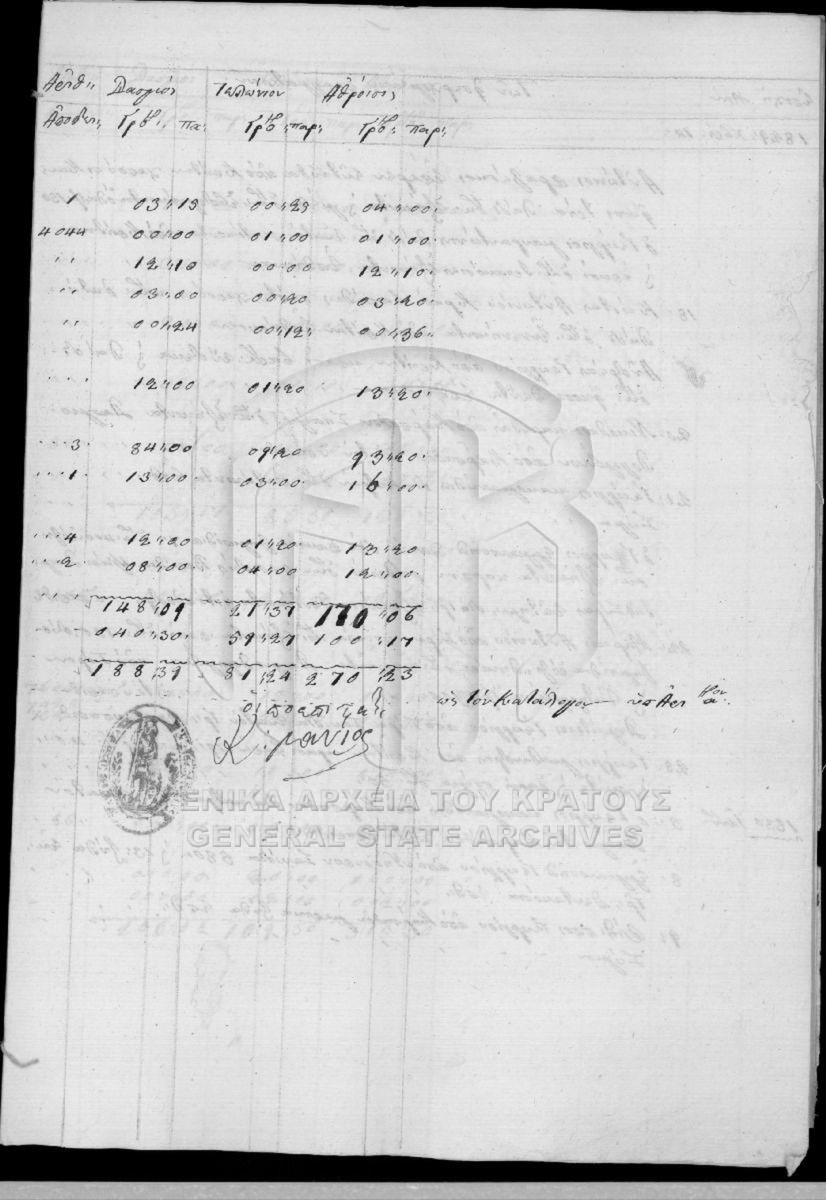 Ἀριθ: Δασμιός Τελώνιον Ἄθροισις
Ἀποδει: Γρό: πα: Γρό: παρ: Γρό: παρ:
1 03"19 00"29 04"00
4044 00"00 01"00 01"00
" 12"10 00"00 12"10
" 03"00 00"20 03"20
" 00"24 00"12 00"36
" 12"00 01"20 13"20
3 84"00 09"20 93"20
1 13"00 03"00 16"00
4 12"00 01"20 13"20
2 08"00 04"00 12"00
148"09 21"37 170"06
040"30 59"27 100"17
188"39 81"24 270"23
ὡς τόν Κατάλογον ὑπ Ἀρι
ΓΕΝΙΚΑ ΑΡΧΕΙΑ ΤΟΥ ΚΡΑΤΟΥΣ
GENERAL STATE ARCHIVES